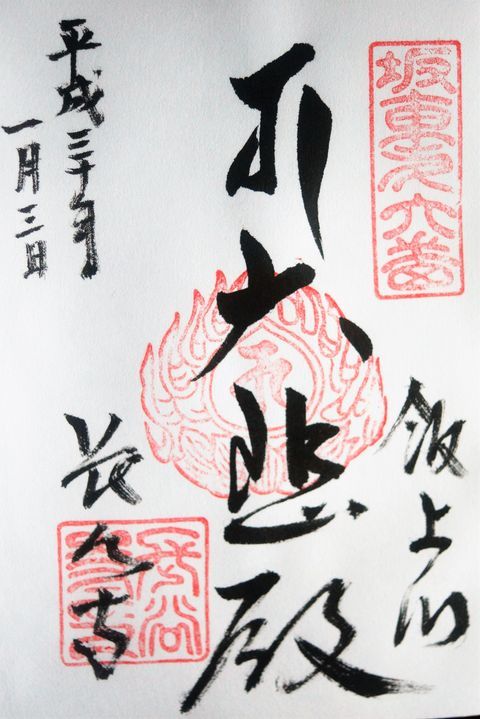 坂東第六番
飯上山
大悲殿
長谷寺
平成三十年
一月三日